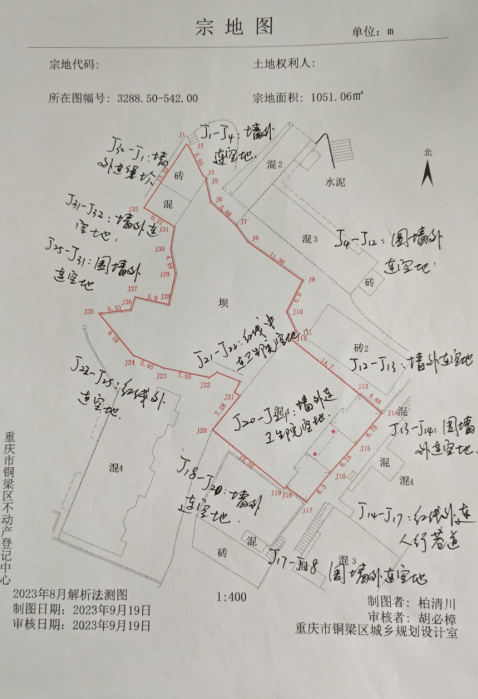 宗地图
单位：m
宗地代码：
土地权利人：
所在图幅号：3288.50-542.00
宗地面积：1051.06㎡
北
J1-J4：墙外
连空地.
J32-J1：墙
外连堡坎
砖
混
混2
水泥
J31-J32：墙外连
空地.
J25-J31：围墙外
连空地
混3
J4-J12：围墙外
连空地
砖
坝
J21-J22：红线外
连卫生院空地
砖2
J12-J13：墙外连空地
J22-J25：红线外
连空地
J20-J21：墙外连
卫生院空地
J13-J14：围墙
外连空地
混4
J18-J20：墙外
连空地
混
混4
J14-J17：红线外连
人行巷道
砖
混3
J17-J18 围墙外连空地
重庆市铜梁区不动产登记中心
2023年8月解析法测图
制图日期：2023年9月19日
审核日期：2023年9月19日
1:400
制图者：柏清川
审核者：胡必樟
重庆市铜梁区城乡规划设计室